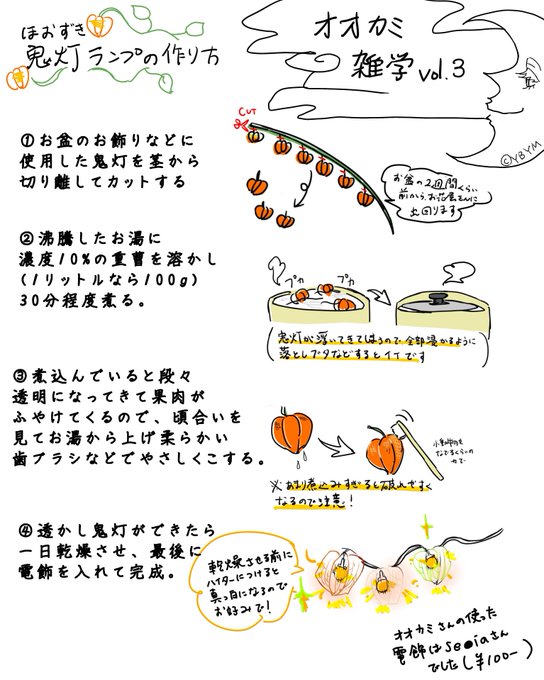 ほおずき
鬼灯ランプの作り方
オオカミ
雑学 vol.3
©YBYM
CUT
①お盆のお飾りなどに
使用した鬼灯を茎から
切り離してカットする
お盆の2週間くらい
前から、お花屋さんに
出回ります
②沸騰したお湯に
濃度10%の重曹を溶かし
(1リットルなら100g)
30分程度煮る。
プカ
プカ
鬼灯が浮いてきてしまうので全部浸かるように
落としブタなどするとイイです
③煮込んでいると段々
透明になってきて果肉が
ふやけてくるので、頃合いを
見てお湯から上げ柔らかい
歯ブラシなどでやさしくこする。
なでるくらいの
力で
※あまり煮込みすぎると破れやすく
なるので注意!
④透かし鬼灯ができたら
一日乾燥させ、最後に
電飾を入れて完成。
乾燥させる前に
ハイターにつけると
真っ白になるので
お好みで!
オオカミさんの使った
電飾はSe●iaさん
でした(¥100-)